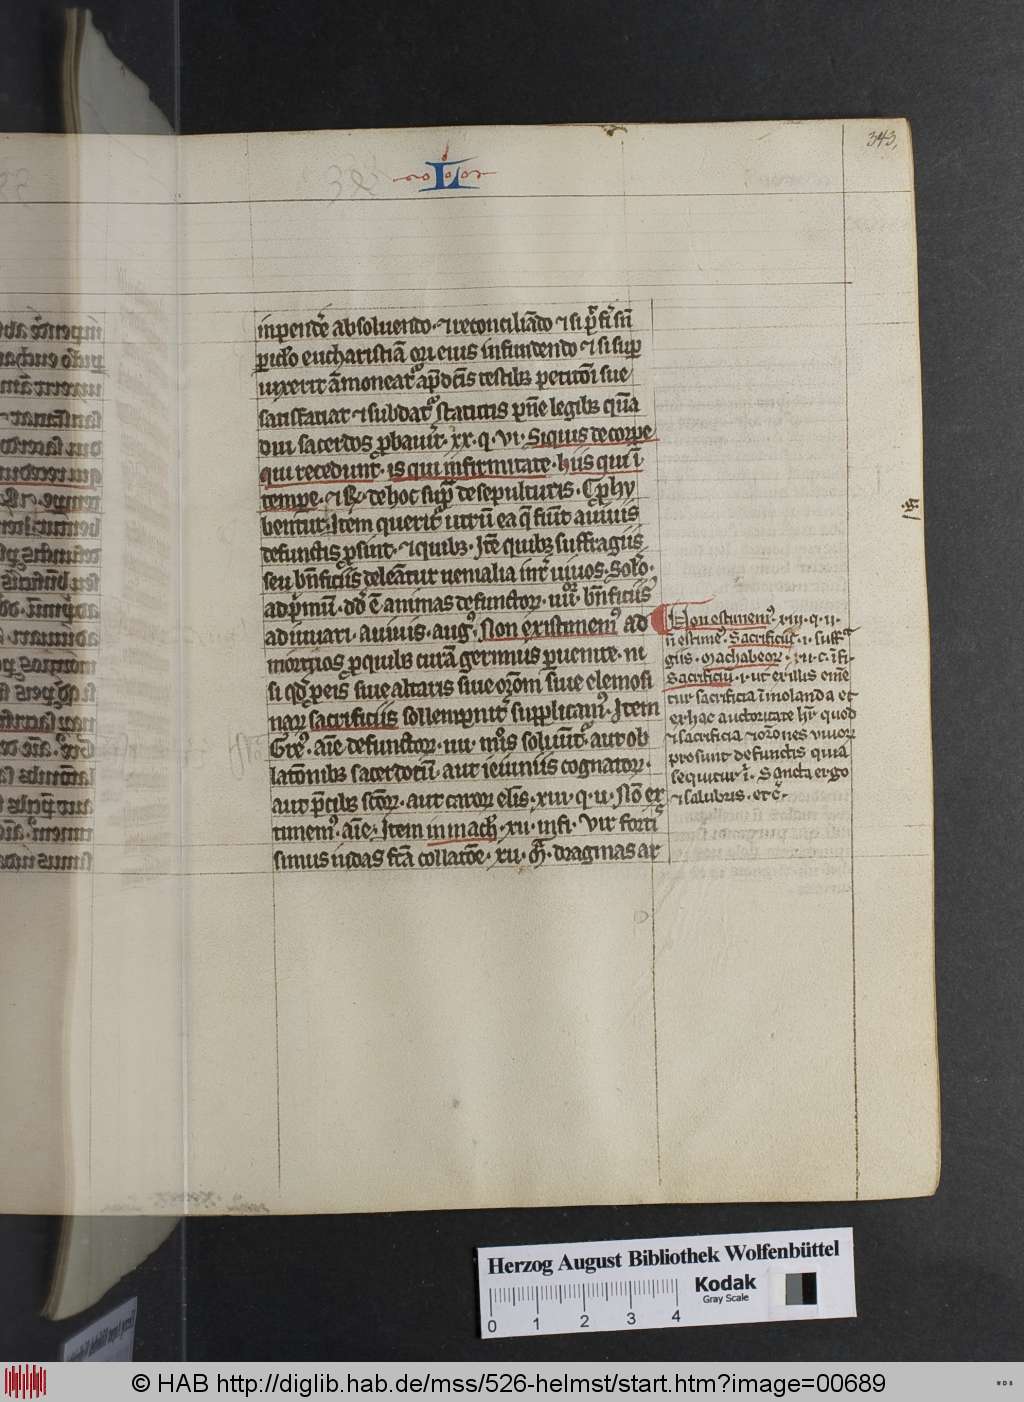 343,
L
inpenitẽ absoluendo · ⁊ reconciliãdo ⁊ si p̃ fi᷑ sñ
piclo eucharistiã ori eius infundendo ⁊ si sup
uixerit ãmoneatᷣ a p̃dcĩs testibꝫ peticõi sue
satisfactũ ⁊ subdatᷣ statutis pñie legibꝫ
diu sacerdos ꝓbauit᷑ · xx · q · vi · Siquis de corpe
qui recedunt᷑ · is qui infirmitate · hiis qui ĩ
tempe · de hoc sup̃ de sepulturis · Cphy
bentur Item querit᷑ utrũ ea q̃ fiũt a uiuis
defunctis ꝓsint · ⁊ quibꝫ · Itẽ quibꝫ suffragiis
seu bñficiis deleãtur uenialia int᷑ uiuos · Solõ ·
ad p̃mũ · dõ ẽ animas defunctoꝝ · bñficiis
adiuuari · a uiuis · augꝰ Non existimemꝰ ad
mortuos ꝓ quibꝫ curã gerimus ꝑuenire · ni
si qd̃ ꝓ eis siue altaris siue orõm siue elemosi
naꝝ sacrificiis sollempnit᷑ supplicamꝰ · Item
Greꝰ · aĩe defunctoꝝ · iiii · mõis soluũt᷑ · aut ob
latõnibꝫ sacerdotũ · aut ieiuniis cognatoꝝ ·
aut p̃cibꝫ sc̃oꝝ · aut caroꝝ elĩs · xiii · q · ii · Nõ ex
timemꝰ · aĩe · Item in mach᷑ · xii · infi · Vir forti
simus iudas fc̃a collatõe · xii · m̃ · dragmas ar
Non estimemꝰ · xiii · q · ii ·
ñ estime · Sacrificiis · i · suff᷑
giis · Machabeoꝝ · xii · c · ĩ fi ·
Sacrificiũ · i · ut ex illis eme᷑
tur sacrificia ĩmolanda et
ex hac auctoritate hr̃ quod
⁊ sacrificia ⁊ orõnes viuoꝝ
prosunt defunctis quia
sequitur ĩ · Sancta ergo
⁊ salubris · et c̃ ·
Herzog August Bibliothek Wolfenbüttel
0 1 2 3 4
Kodak
Gray Scale
© HAB http://diglib.hab.de/mss/526-helmst/start.htm?image=00689
WDB